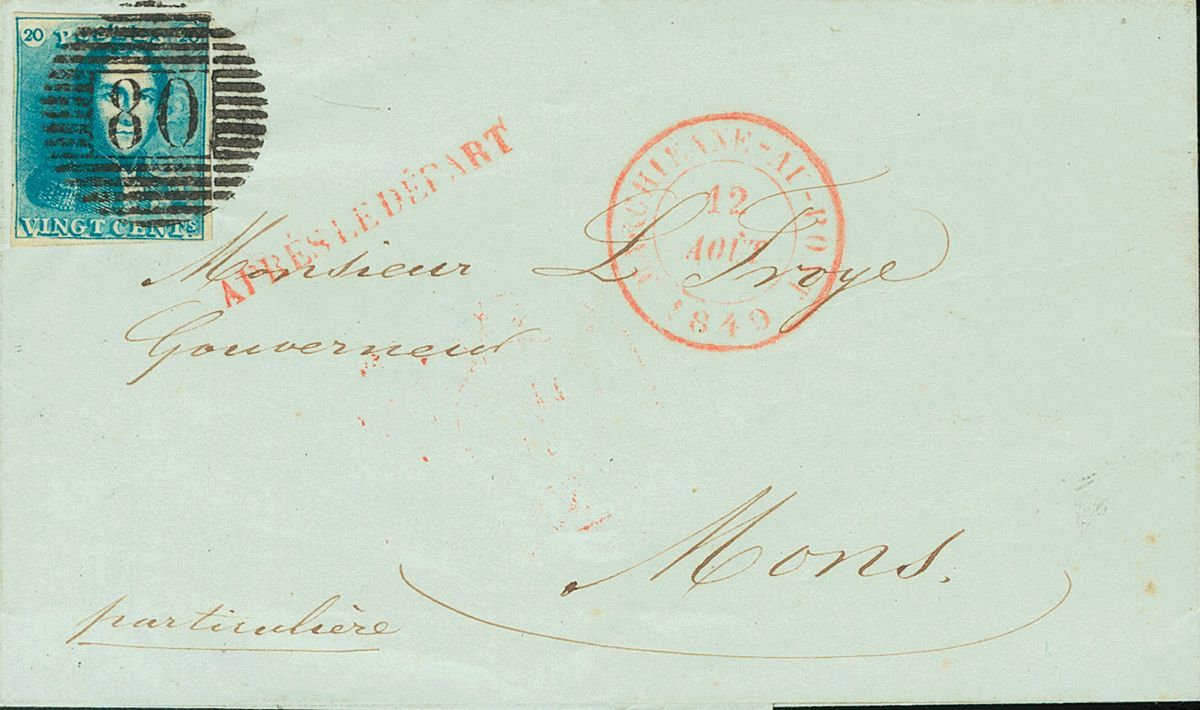 20 POSTES 20
80
VINGT CENTS
APRÈS LE DÉPART
MARCHIENNE-AU-PONT
12
AOÛT
1849
Monsieur L Troye
Gouverneur
Mons.
particulière